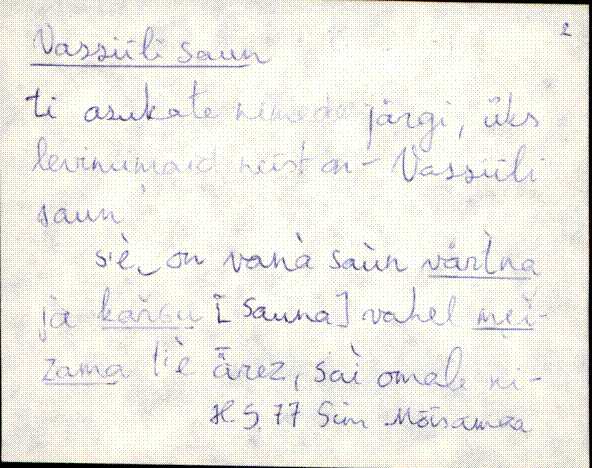 2
Vassiili saun
ti asukate nimede järgi, üks
levinumaid neist on - Vassiili
saun
siè on vanà saùn vàrìna
ja karsu [sauna] vahel mei-
zama tiè ärez, sai omale ni-
H S 77 Sim Mõisamaa